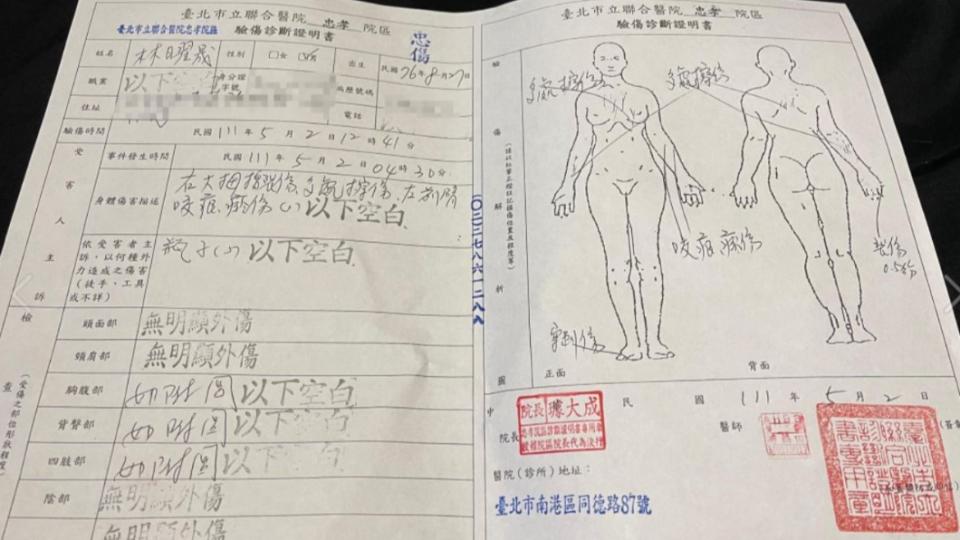 臺北市立聯合醫院 忠孝 院區
臺北市立聯合醫院忠孝院區
驗傷診斷證明書
忠傷
姓名 林曜晟 性別 □女 出生 民國76年8月27日
職業 以下空白 身分證字號 病歷號碼
住址 電話
驗傷時間 民國 111 年 5 月 2 日 12 時 41 分
受害人主訴
事件發生時間 民國 111 年 5 月 2 日 04 時 30 分
身體傷害描述 右大拇指 傷,多處擦傷,左前臂
咬痕 傷(-) 以下空白
依受害者主訴,以何種外力造成之傷害(徒手、工具或不詳) 瓶子(-) 以下空白
檢查
(受傷之部位形狀程度)
頭面部 無明顯外傷
頸肩部 無明顯外傷
胸腹部 如附圖 以下空白
背臀部 如附圖 以下空白
四肢部 如附圖 以下空白
陰部 無明顯外傷
無明顯外傷
(02)27861288
臺北市立聯合醫院 忠孝 院區
驗傷診斷證明書
驗傷解析圖
多處擦傷
多處擦傷
咬痕 傷
裂傷
0.5公分
穿刺傷
正面
背面
中 民 國 111 年 5 月 2 日
院長
院長 璩大成
醫師
醫院(診所)地址:
臺北市南港區同德路87號